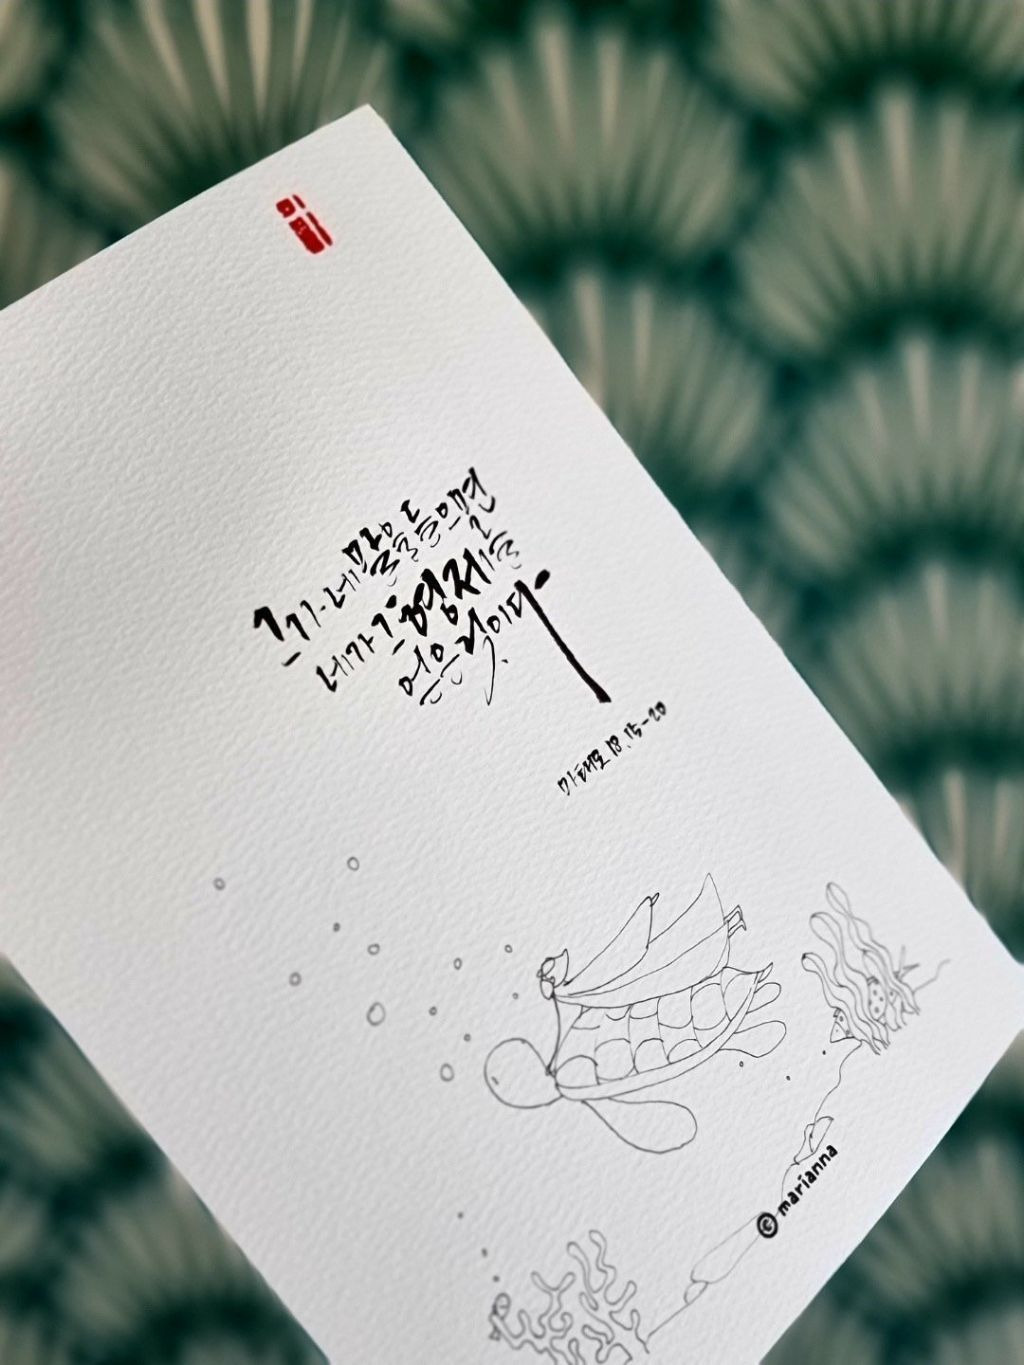 그가 네 말을 들으면
네가 그 형제를
얻은 것이다
마태오 18,15-20
© marianna